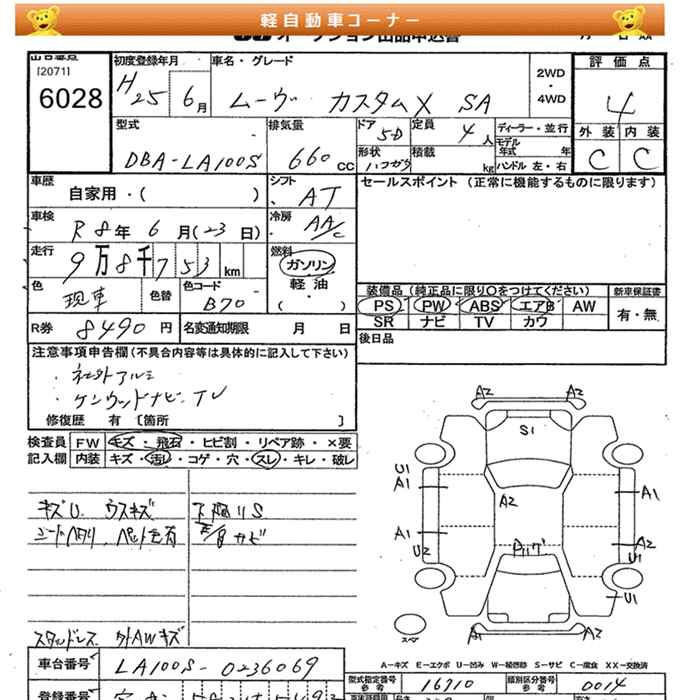 軽自動車コーナー
オークション出品申込書
[2071]
6028
初度登録年月
H25 6月
車名・グレード
ムーヴ カスタムX SA
2WD
・
4WD
評価点
4
外装 内装
C C
型式
DBA-LA100S
排気量
660 cc
ドア 5D
定員 4人
形状 ハコガタ
積載 kg
ディーラー・並行
モデル
年式 年
ハンドル 左・右
車歴
自家用・( )
シフト
AT
セールスポイント (正常に機能するものに限ります)
車検
R8年6月(23日)
冷房
AA/C
走行
9万8千753 km
燃料
ガソリン
軽油
・
( )
色
現車
色替
色コード
B70
装備品 (純正品に限り○をつけてください)
PS PW ABS エアB AW
SR ナビ TV カワ
新車保証書
有・無
R券 8490円
名変通知期限 月 日
後日品
注意事項申告欄(不具合内容等は具体的に記入して下さい)
・社外アルミ
・ケンウッドナビ.TV
修復歴 有 〔箇所 〕
検査員 FW キズ・飛石・ヒビ割・リペア跡・×要
記入欄 内装 キズ・汚レ・コゲ・穴・スレ・キレ・破レ
キズU ウスキズ
下廻りS
シートヘタリ.ペット毛有
サビ
スタッドレス 外AWキズ
A2 A2
S1
U1
A1
A2
A1
A1
U2
A2
U1
U1
A1 A2
スペア
A－キズ E－エクボ U－凹み W－補修跡 S－サビ C－腐食 XX－交換済
車台番号
LA100S-0236069
型式指定番号
参考
16710
類別区分番号
参考
0014
登録番号